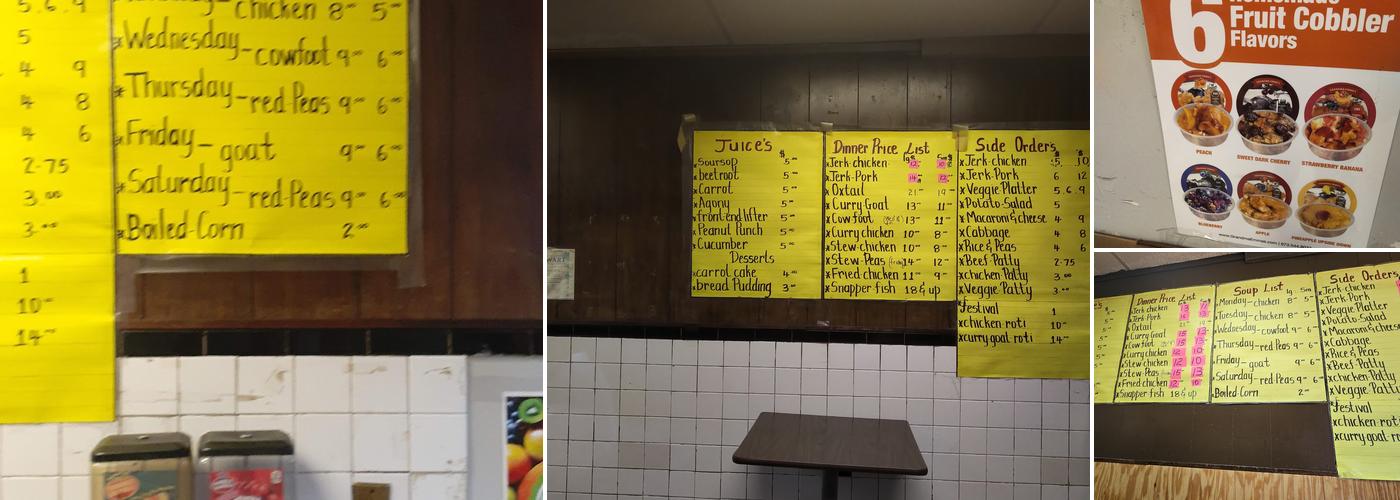 5. 6. 9
5
4 9
4 8
4 6
2.75
3.00
3.00
1
10
14
chicken 8 5
*Wednesday-cowfoot 9 6
*Thursday-red Peas 9 6
*Friday-goat 9 6
*Saturday-red Peas 9 6
*Boiled-Corn 2
Juice's
$
Soursop 5
beetroot 5
Carrot 5
Agony 5
front-end lifter 5
Peanut Punch 5
Cucumber 5
Desserts
carrot cake 4
bread Pudding 3
Dinner Price List
Jerk-chicken
Jerk-Pork
Oxtail 21 19
Curry-Goat 13 11
Cow foot 13 11
Curry chicken 10 8
Stew-chicken 10 8
Stew-Peas 14 12
Fried-chicken 11 9
Snapper fish 18 & up
Side Orders
Jerk-chicken 5 10
Jerk-Pork 6 12
Veggie Platter 5. 6. 9
Potato-Salad 5
Macaroni & cheese 4 9
Cabbage 4 8
Rice & Peas 4 6
Beef Patty 2.75
chicken Patty 3.00
Veggie Patty 3.00
festival 1
chicken roti 10
curry goat roti 14
6 Homemade
Fruit Cobbler
Flavors
PEACH
SWEET DARK CHERRY
STRAWBERRY BANANA
BLUEBERRY
APPLE
PINEAPPLE UPSIDE DOWN
Dinner Price List
Jerk chicken 13 11
Jerk-Pork
Oxtail 21 19
Curry-Goat 15 13
Cow foot 15 13
Curry chicken 12 10
Stew chicken 12 10
Stew-Peas 15 13
Fried chicken 12 10
Snapper fish 18 & up
Soup List lg. Sm
Monday-chicken 8 5
Tuesday-chicken 8 5
Wednesday-cowfoot 9 6
Thursday-red Peas 9 6
Friday-goat 9 6
Saturday-red Peas 9 6
Boiled-Corn 2
Side Orders
Jerk-chicken
Jerk-Pork
Veggie Platter
Potato-Salad
Macaroni & chees
Cabbage
Rice & Peas
Beef-Patty
chicken-Patty
Veggie Patty
festival
chicken roti
curry goat r